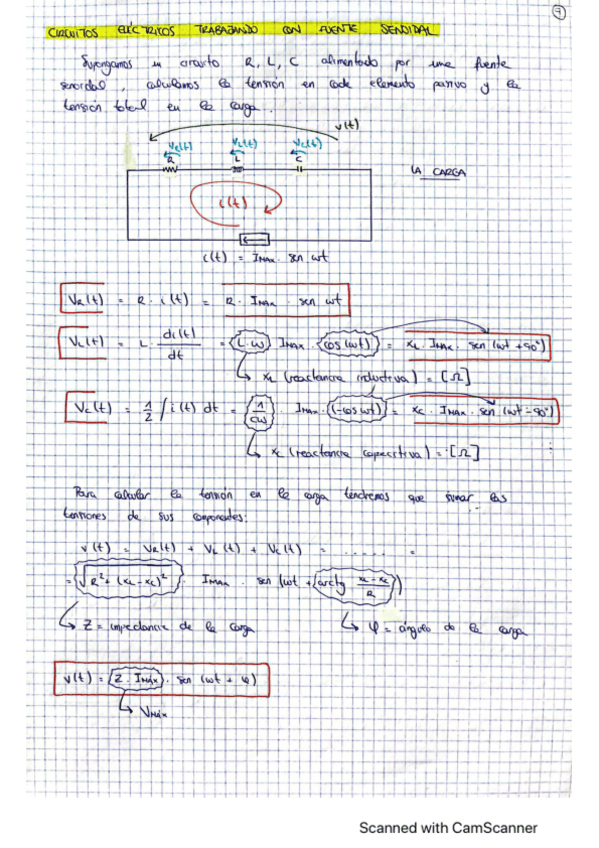 7
CIRCUITOS ELÉCTRICOS TRABAJANDO CON FUENTE SENOIDAL
Supongamos un circuito R, L, C alimentado por una fuente
senoidal, calculamos la tensión en cada elemento pasivo y la
tensión total en la carga.
v(t)
VR(t) VL(t) VC(t)
R L C
LA CARGA
i(t)
i(t) = IMAX · sen wt
VR(t) = R · i(t) = R · IMAX · sen wt
VL(t) = L · di(t)/dt = (L·ω) IMAX · (cos(wt)) = XL · IMAX · sen (wt + 90°)
XL (reactancia inductiva) = [Ω]
VC(t) = 1/2 ∫ i(t) dt = (1/cω) IMAX · (-cos wt) = XC · IMAX · sen (wt - 90°)
XC (reactancia capacitiva) = [Ω]
Para calcular la tensión en la carga tendremos que sumar las
tensiones de sus componentes:
v(t) = VR(t) + VL(t) + VC(t) = ...... =
= √R² + (XL - XC)² · IMAX · sen (wt + (arctg XL - XC / R))
Z = impedancia de la carga
φ = ángulo de la carga
v(t) = (Z · IMÁX) · sen (wt + φ)
VMÁX
Scanned with CamScanner